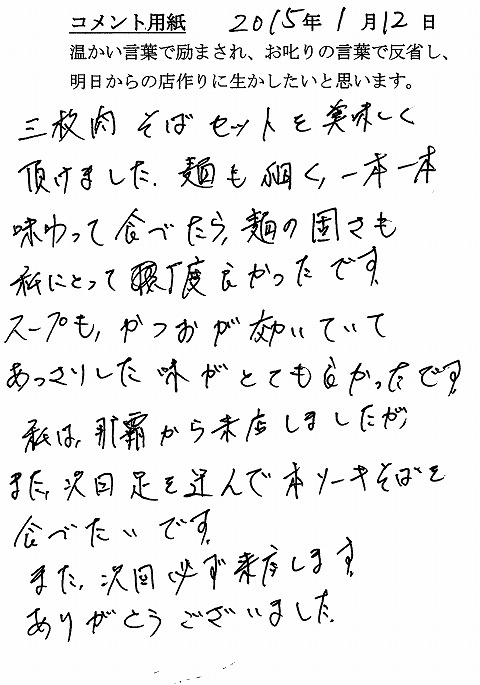 コメント用紙 2015年1月12日
温かい言葉で励まされ、お叱りの言葉で反省し、
明日からの店作りに生かしたいと思います。
三枚肉そばセットを美味しく
頂けました。麺も細く、一本一本
味わって食べたら、麺の固さも
私にとって丁度良かったです。
スープも、かつおが効いていて
あっさりした味がとても良かったです。
私は、那覇から来店しましたが、
また、次回足を運んで本ソーキそばを
食べたいです。
また、次回必ず来店します。
ありがとうございました。